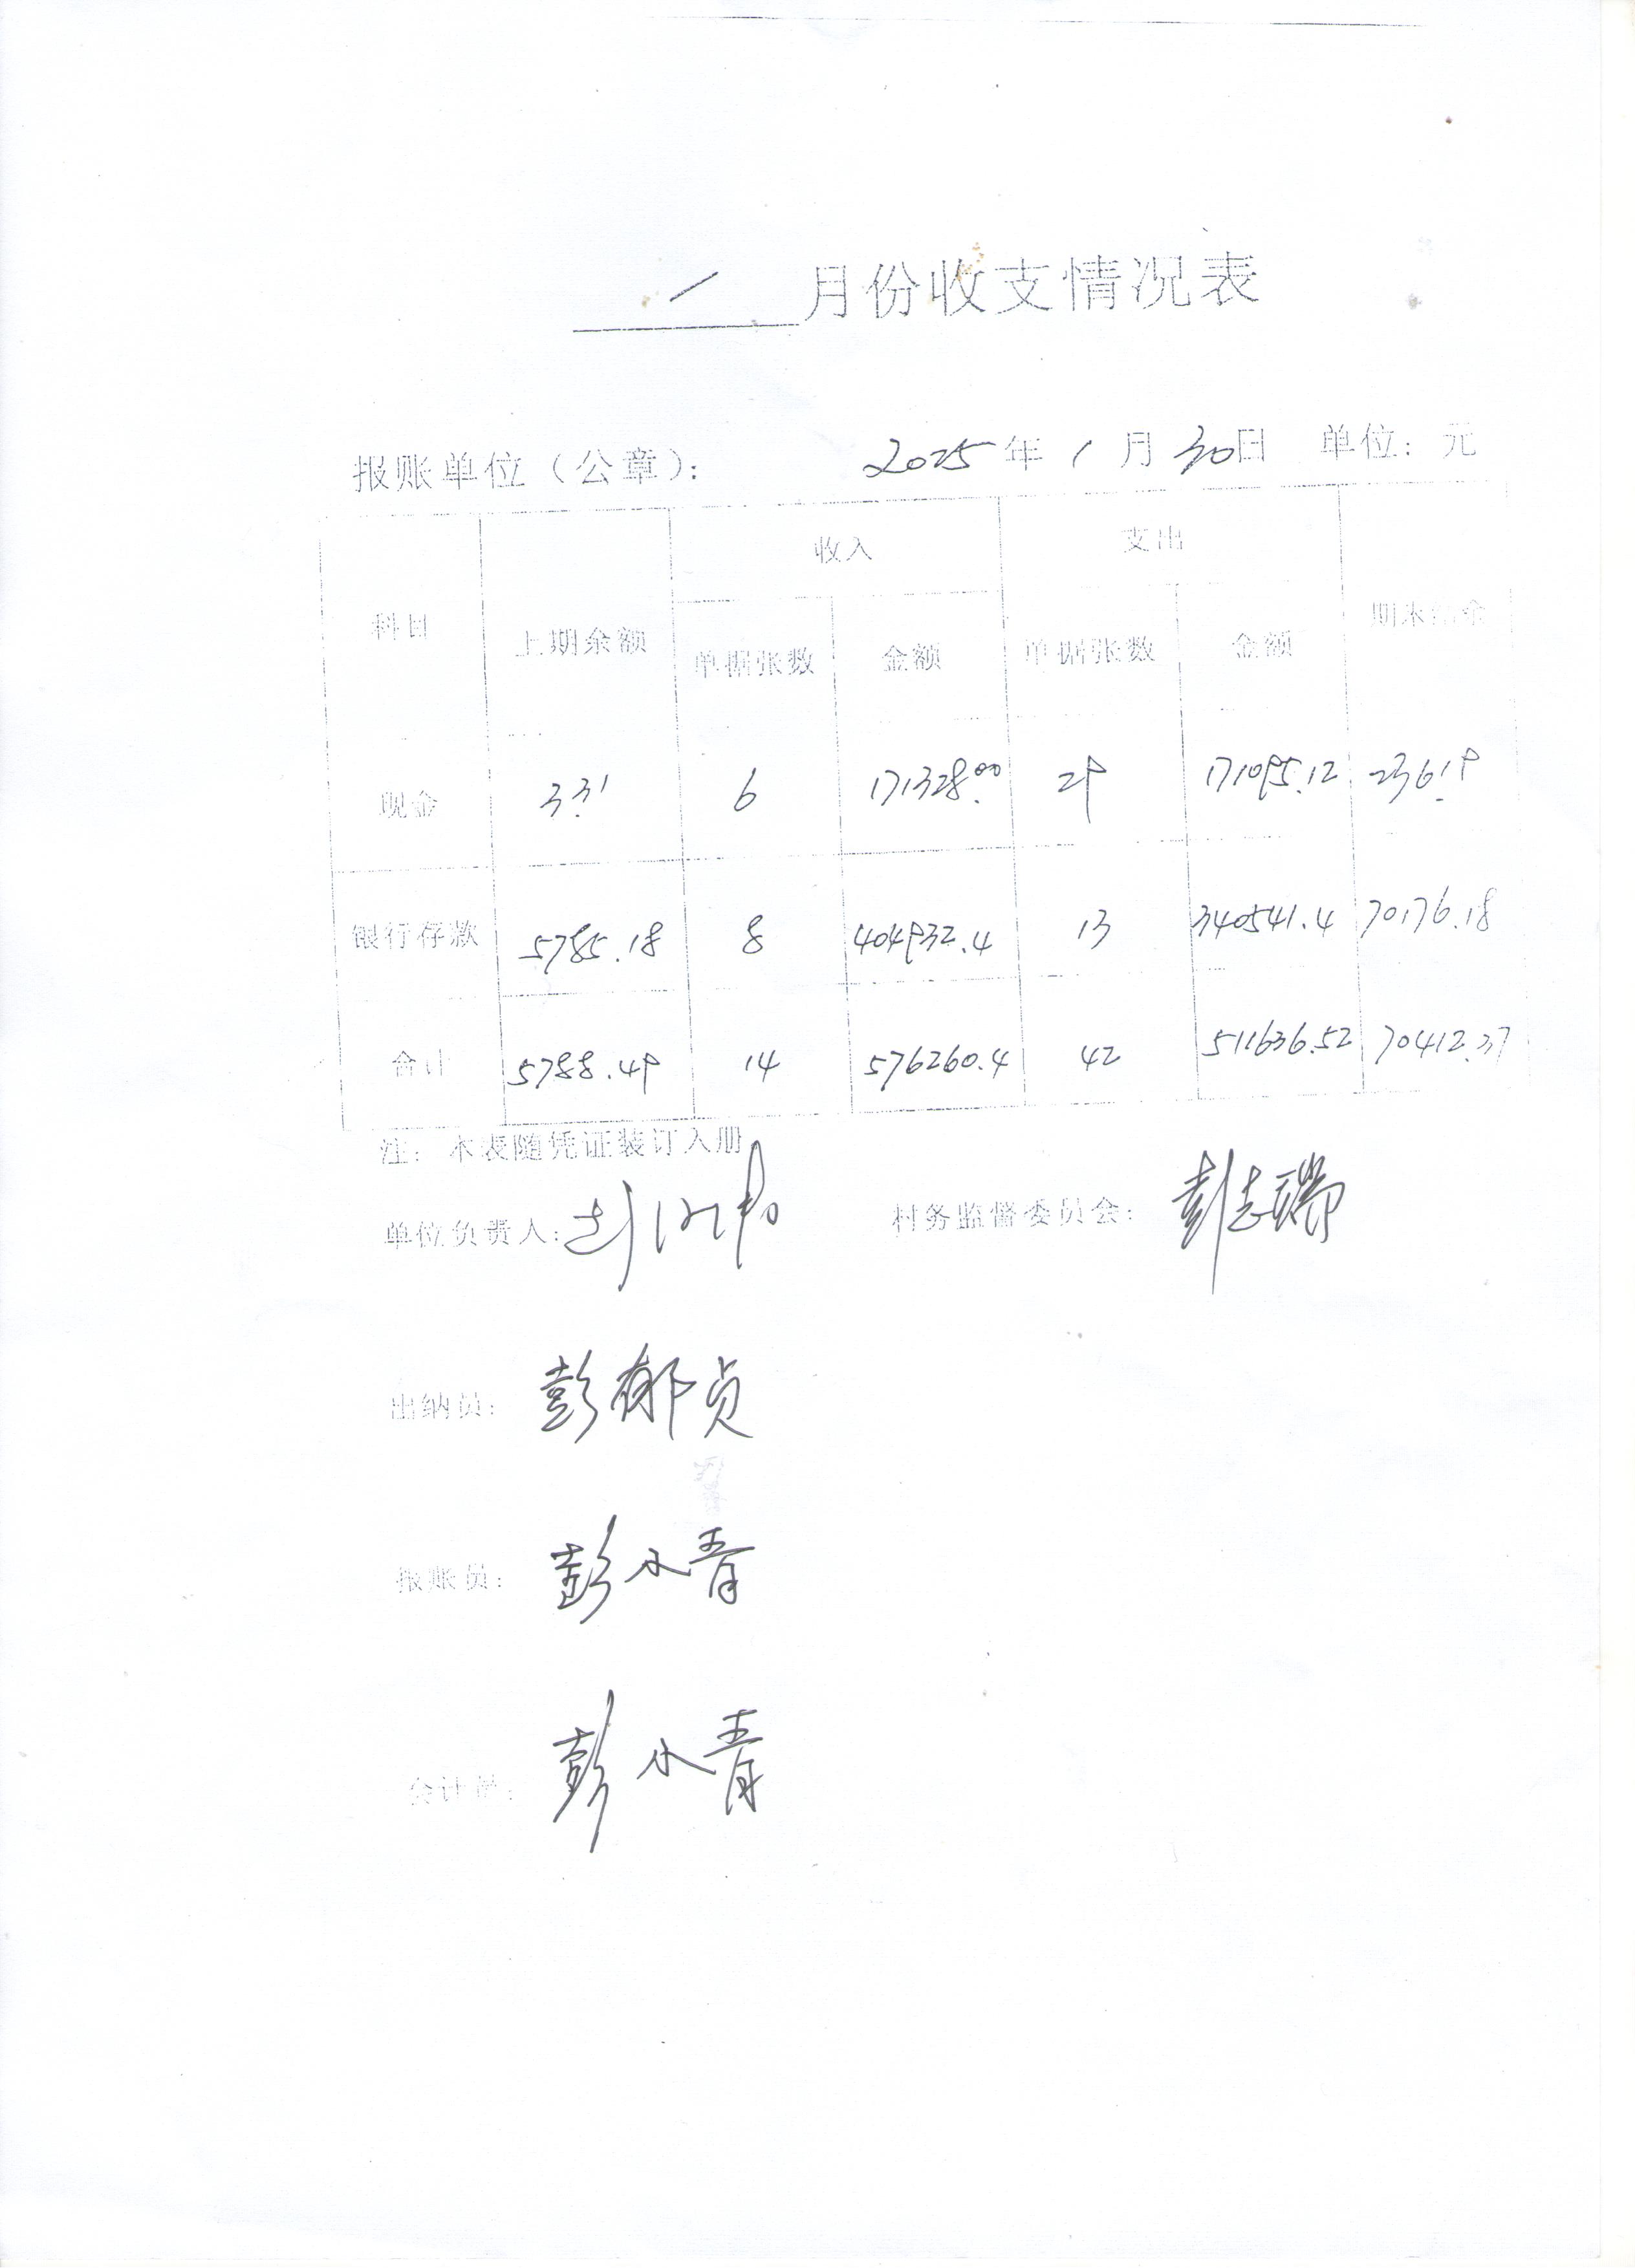 1 月份收支情况表
报账单位（公章）： 2025年1月30日 单位：元
科目 上期余额 收入 支出 期末结余
单据张数 金额 单据张数 金额
现金 3.31 6 171328.00 29 171095.12 236.19
银行存款 5785.18 8 404932.4 13 340541.4 70176.18
合计 5788.49 14 576260.4 42 511636.52 70412.37
注：本表随凭证装订入册
单位负责人： 村务监督委员会：彭志瑞
出纳员：彭郁贞
报账员：彭小青
会计员：彭小青